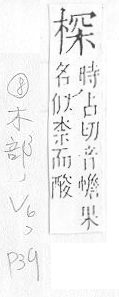 棎
時占切音蟾果
名似柰而酸
⑧木部, V6, P39